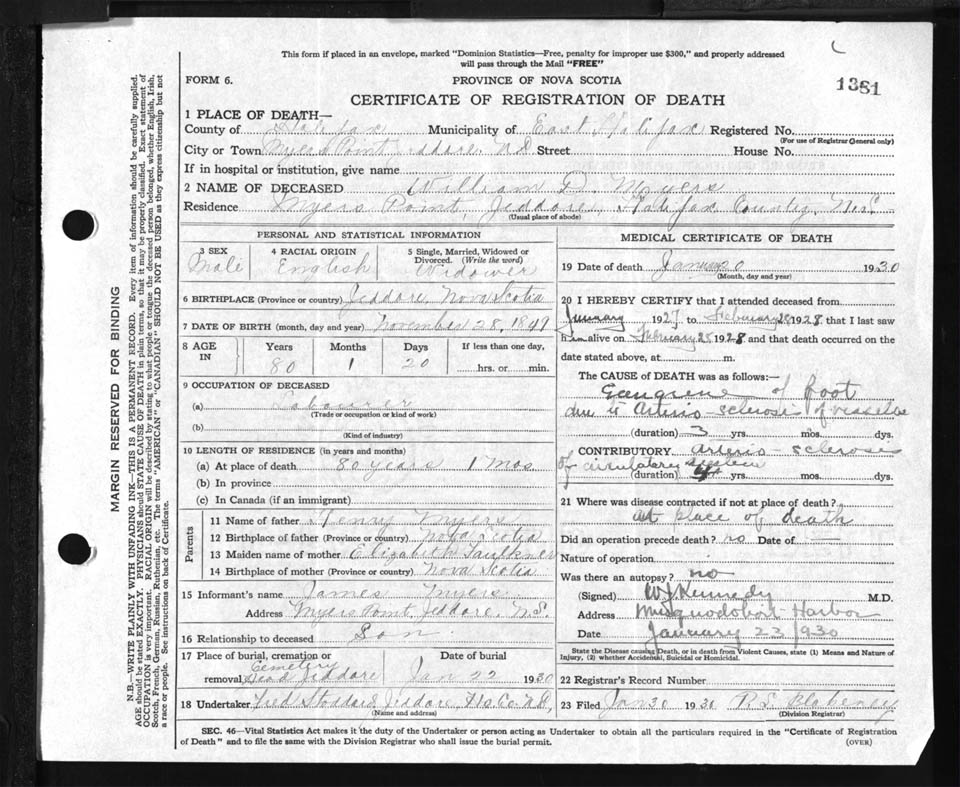 This form if placed in an envelope, marked "Dominion Statistics—Free, penalty for improper use $300," and properly addressed
will pass through the Mail "FREE"
FORM 6.
PROVINCE OF NOVA SCOTIA
1381
CERTIFICATE OF REGISTRATION OF DEATH
1 PLACE OF DEATH—
County of Halifax Municipality of East Halifax Registered No.
(For use of Registrar General only)
City or Town Myers Point Jeddore N.S. Street House No.
If in hospital or institution, give name
2 NAME OF DECEASED William D Myers
Residence Myers Point, Jeddore, Halifax County, N.S.
(Usual place of abode)
PERSONAL AND STATISTICAL INFORMATION
3 SEX
Male
4 RACIAL ORIGIN
English
5 Single, Married, Widowed or
Divorced. (Write the word)
Widower
6 BIRTHPLACE (Province or country) Jeddore, Nova Scotia
7 DATE OF BIRTH (month, day and year) November 28, 1849
8 AGE IN
Years Months Days If less than one day,
80 1 20 hrs. or min.
9 OCCUPATION OF DECEASED
(a) Labourer
(Trade or occupation or kind of work)
(b)
(Kind of industry)
10 LENGTH OF RESIDENCE (in years and months)
(a) At place of death 80 years 1 Mos
(b) In province
(c) In Canada (if an immigrant)
Parents
11 Name of father Henry Myers
12 Birthplace of father (Province or country) Nova Scotia
13 Maiden name of mother Elizabeth Faulkner
14 Birthplace of mother (Province or country) Nova Scotia
15 Informant's name James Myers
Address Myers Point, Jeddore, N.S.
16 Relationship to deceased Son
17 Place of burial, cremation or Date of burial
Cemetery
removal Head Jeddore Jan 22 1930
18 Undertaker Fred Stoddard, Jeddore, Hx Co N.S.
(Name and address)
MEDICAL CERTIFICATE OF DEATH
19 Date of death January 1930
(Month, day and year)
20 I HEREBY CERTIFY that I attended deceased from
January 1927 to February 28 1928 that I last saw
him alive on February 28 1928 and that death occurred on the
date stated above, at m.
The CAUSE OF DEATH was as follows:—
Gangrene of foot
due to Arterio-sclerosis of vessels
(duration) 3 yrs. mos. dys.
CONTRIBUTORY Arterio-sclerosis
of circulatory system
(duration) yrs. mos. dys.
21 Where was disease contracted if not at place of death?
At place of death
Did an operation precede death? no Date of —
Nature of operation
Was there an autopsy? no
(Signed) W J Kennedy M.D.
Address Musquodoboit Harbor
Date January 23 1930
State the Disease causing Death, or in death from Violent Causes, state (1) Means and Nature of
Injury, (2) whether Accidental, Suicidal or Homicidal.
22 Registrar's Record Number
23 Filed Jan 30 1930 R.S.
(Division Registrar)
SEC. 46—Vital Statistics Act makes it the duty of the Undertaker or person acting as Undertaker to obtain all the particulars required in the "Certificate of Registration
of Death" and to file the same with the Division Registrar who shall issue the burial permit.
(OVER)
MARGIN RESERVED FOR BINDING
N.B.—WRITE PLAINLY WITH UNFADING INK—THIS IS A PERMANENT RECORD. Every item of information should be carefully supplied.
AGE should be stated EXACTLY. PHYSICIANS should STATE CAUSE OF DEATH in plain terms, so that it may be properly classified. Exact statement of
OCCUPATION is very important. RACIAL ORIGIN will be described by stating to what people or tongue the deceased person belonged, whether English, Irish,
Scotch, French, German, Russian, Ruthenian, etc. The terms "AMERICAN" or "CANADIAN" SHOULD NOT BE USED as they express citizenship but not
a race or people. See instructions on back of Certificate.